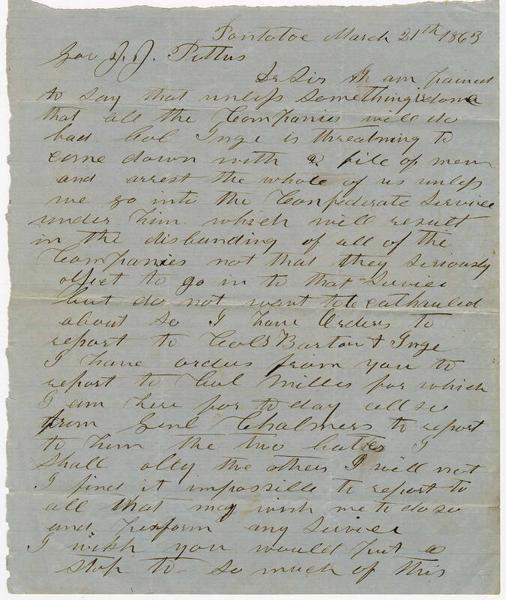 Pontotoc March 21th 1863
Gov J. J. Pettus
Dr Sir I am pained
to say that unless something is done
that all the Companies will do
bad Col Inge is threatning to
come down with a file of men
and arrest the whole of us unless
we go into the Confederate Service
under him which will result
in the disbanding of all of the
Companies not that they seriously
object to go in to that Service
but do not want to be hauled
about so I have orders to
report to Cols Barton & Inge
I have orders from you to
report to Col Miller for which
I am here for to day allso
from Genl Chalmers to report
to him the two latter I
shall obey the others I will not
I find it impossible to report to
all that may wish me to do so
and perform any Service
I wish you would put a
stop to so much of this